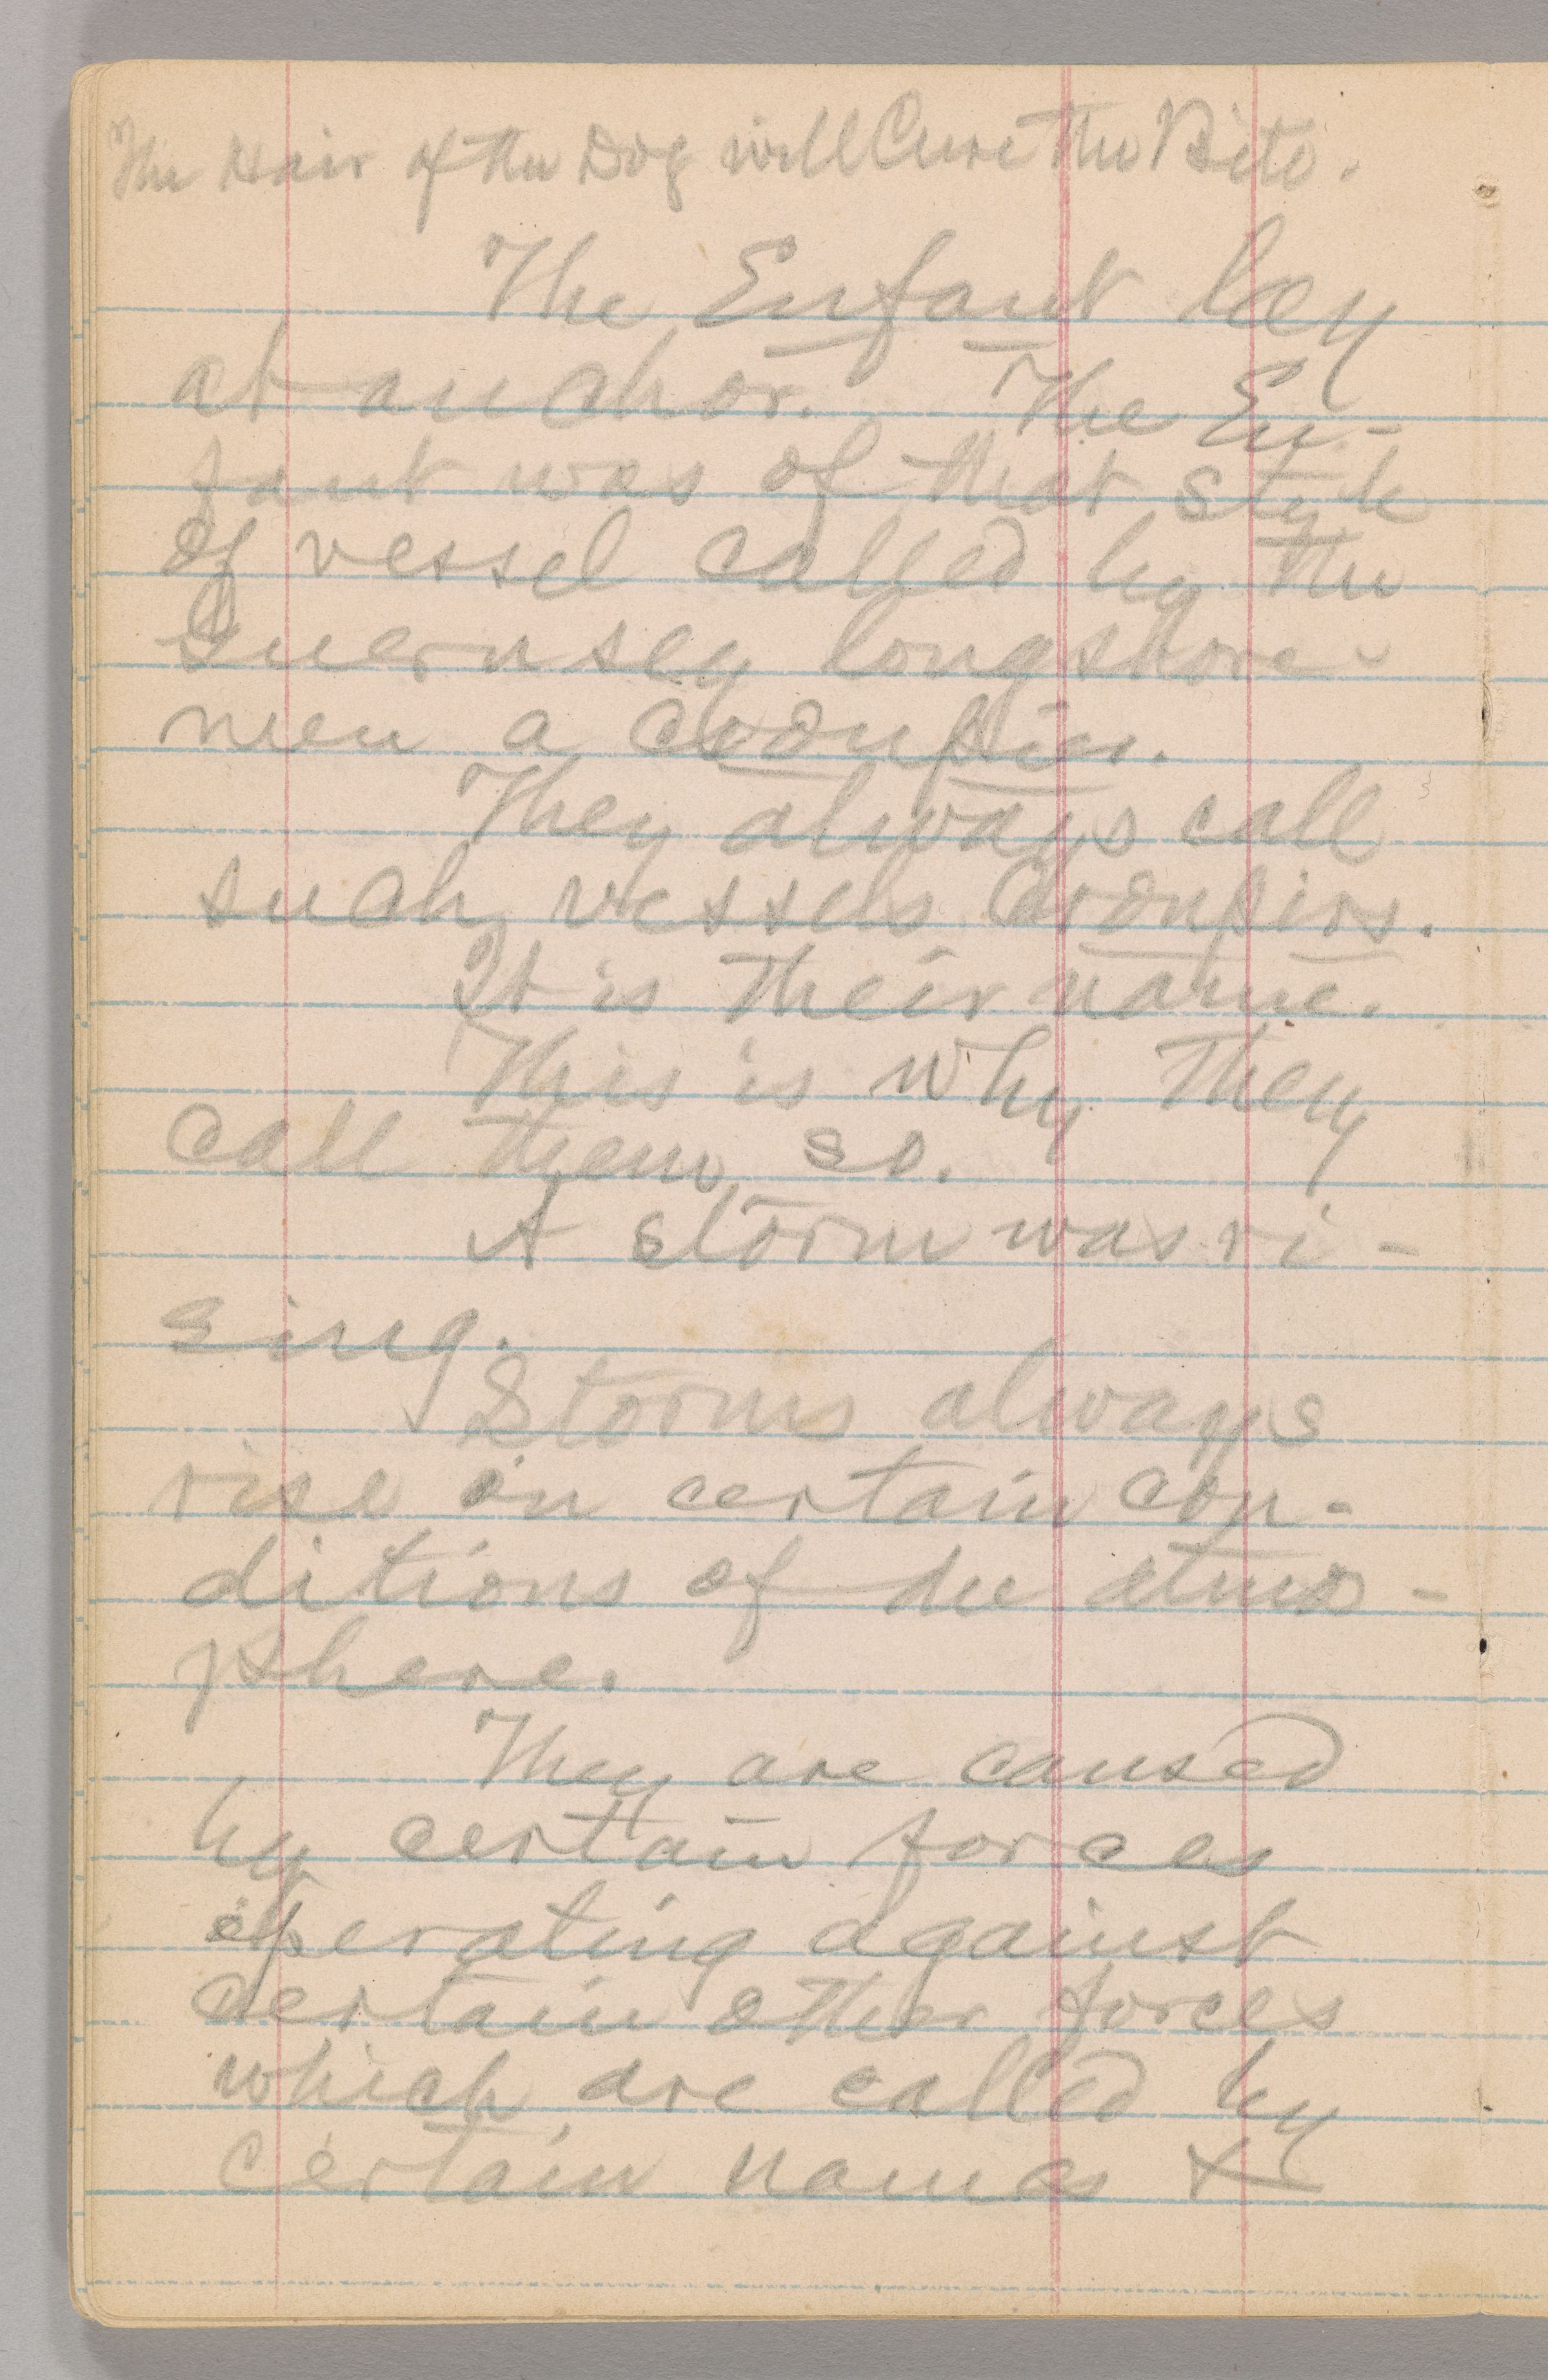 The Hair of the Dog will Cure the Bite.
The Enfant lay
at anchor. The En-
fant was of that style
of vessel called by the
Guernsey longshore-
men a croupier.
They always call
such vessels Croupiers.
It is their name.
This is why they
call them so.
A storm was ri-
sing.
Storms always
rise in certain con-
ditions of the atmo-
sphere.
They are caused
by certain forces
operating against
certain other forces
which are called by
certain names &